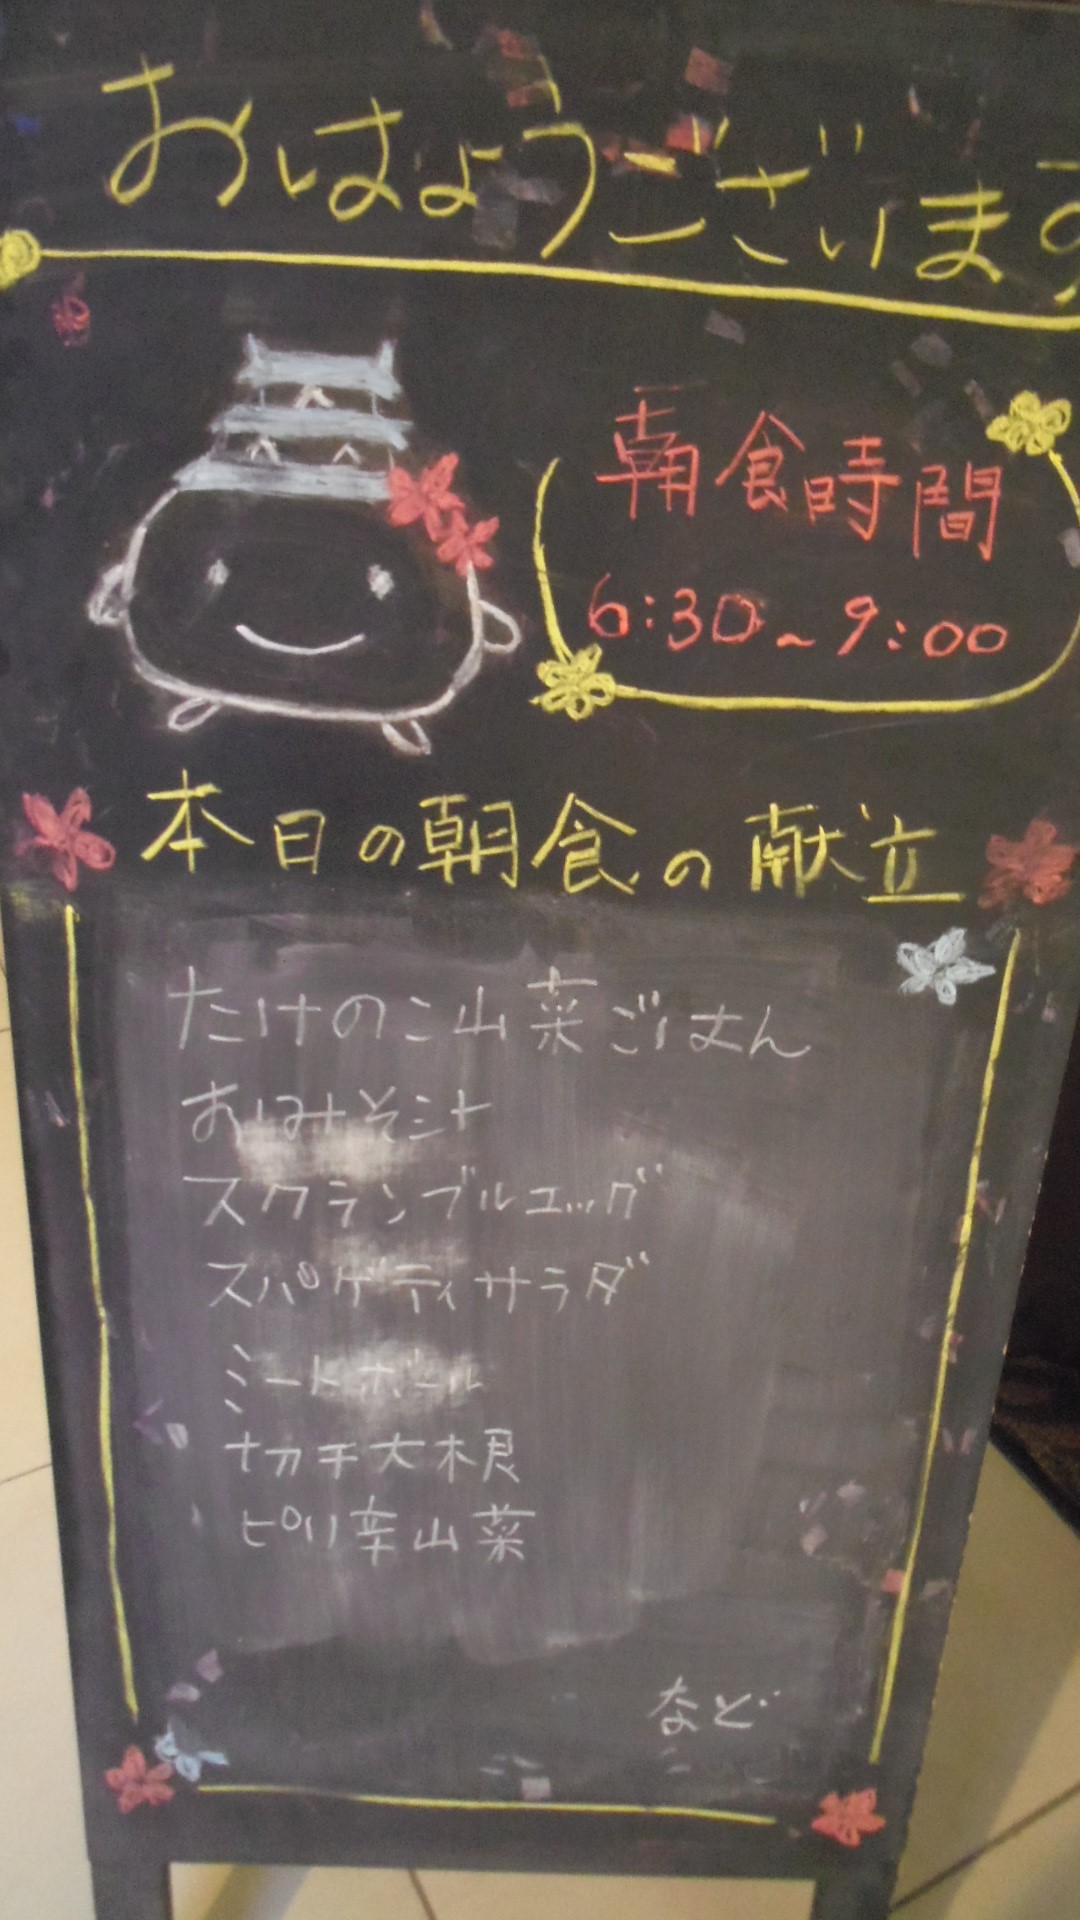 おはようございます
朝食時間
6:30~9:00
本日の朝食の献立
たけのこ山菜ごはん
おみそ汁
スクランブルエッグ
スパゲティサラダ
ミートボール
切干大根
ピリ辛山菜
など